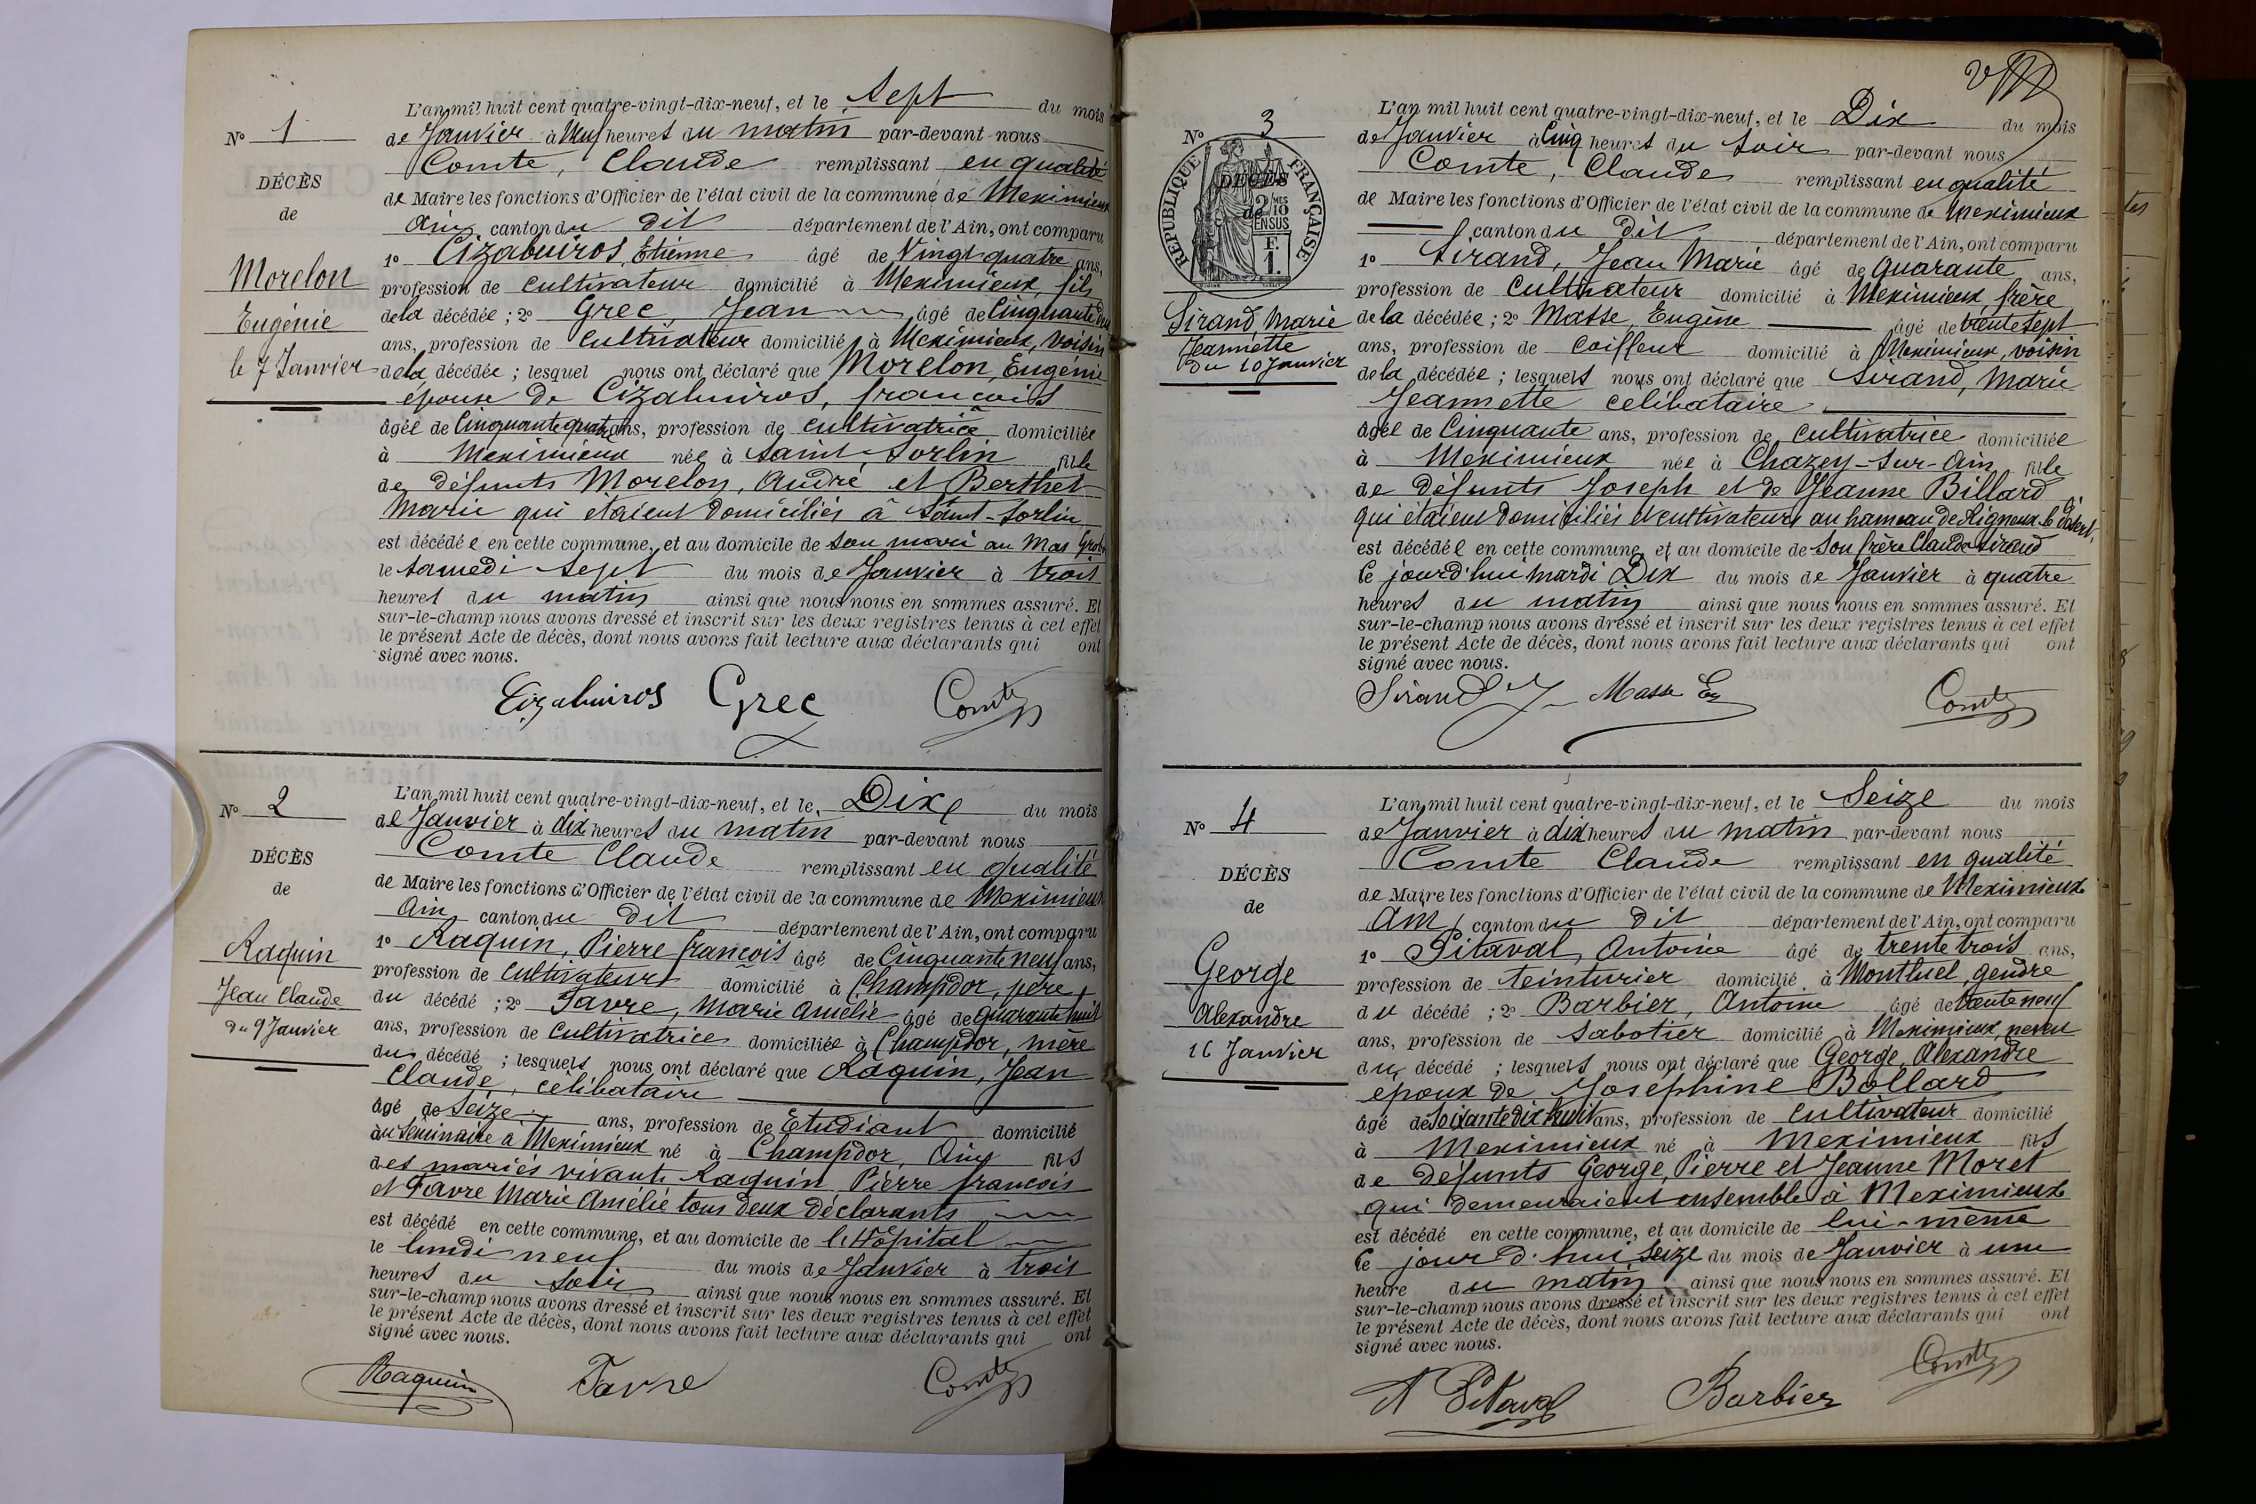 N° 1
DÉCÈS
de
Morelon
Eugénie
le 7 Janvier
L'an mil huit cent quatre-vingt-dix-neuf, et le Sept du mois
de Janvier à Neuf heures du matin par-devant nous
Comte, Claude remplissant en qualité
de Maire les fonctions d'Officier de l'état civil de la commune de Meximieux
Ain canton du dit département de l'Ain, ont comparu
1° Cizabuiros, Etienne âgé de Vingt quatre ans,
profession de cultivateur domicilié à Meximieux, fils
de la décédée ; 2° Grec, Jean âgé de Cinquante
ans, profession de cultivateur domicilié à Meximieux, voisin
de la décédée ; lesquel nous ont déclaré que Morelon, Eugénie
épouse de Cizabuiros, françois
âgée de Cinquante quatre ans, profession de cultivatrice domiciliée
à Meximieux née à Saint-Sorlin fille
de défunts Morelon, André et Berthet
Marie qui étaient domiciliés à Saint-Sorlin
est décédée en cette commune, et au domicile de son mari au Mas
le samedi sept du mois de Janvier à trois
heures du matin ainsi que nous nous en sommes assuré. Et
sur-le-champ nous avons dressé et inscrit sur les deux registres tenus à cet effet
le présent Acte de décès, dont nous avons fait lecture aux déclarants qui ont
signé avec nous.
Cizabuiros Grec Comte
N° 2
DÉCÈS
de
Raquin
Jean Claude
du 9 Janvier
L'an mil huit cent quatre-vingt-dix-neuf, et le Dix du mois
de Janvier à dix heures du matin par-devant nous
Comte Claude remplissant en qualité
de Maire les fonctions d'Officier de l'état civil de la commune de Meximieux
Ain canton du dit département de l'Ain, ont comparu
1° Raquin, Pierre françois âgé de Cinquante neuf ans,
profession de cultivateur domicilié à Champdor, père
du décédé ; 2° Favre, Marie Amélie âgé de quarante huit
ans, profession de cultivatrice domiciliée à Champdor, mère
du décédé ; lesquels nous ont déclaré que Raquin, Jean
Claude, célibataire
âgé de Seize ans, profession de Etudiant domicilié
au Séminaire à Meximieux né à Champdor, Ain fils
des mariés vivants Raquin Pierre françois
et Favre Marie Amélie tous deux déclarants
est décédé en cette commune, et au domicile de l'Hôpital
le lundi neuf du mois de Janvier à trois
heures du soir ainsi que nous nous en sommes assuré. Et
sur-le-champ nous avons dressé et inscrit sur les deux registres tenus à cet effet
le présent Acte de décès, dont nous avons fait lecture aux déclarants qui ont
signé avec nous.
Raquin Favre Comte
N° 3
DÉCÈS
de
RÉPUBLIQUE FRANÇAISE
2 MES
10
EN SUS
F.
1.
Sirand, Marie
Jeannette
du 10 Janvier
L'an mil huit cent quatre-vingt-dix-neuf, et le Dix du mois
de Janvier à Cinq heures du soir par-devant nous
Comte, Claude remplissant en qualité
de Maire les fonctions d'Officier de l'état civil de la commune de Meximieux
canton du dit département de l'Ain, ont comparu
1° Sirand, Jean Marie âgé de quarante ans,
profession de cultivateur domicilié à Meximieux, frère
de la décédée ; 2° Masse, Eugène âgé de trente sept
ans, profession de coiffeur domicilié à Meximieux, voisin
de la décédée ; lesquels nous ont déclaré que Sirand, Marie
Jeannette célibataire
âgée de Cinquante ans, profession de cultivatrice domiciliée
à Meximieux née à Chazey-sur-Ain fille
de défunts Joseph et de Jeanne Billard
qui étaient domiciliés et cultivateurs au hameau de Rigneux-le-Désert,
est décédée en cette commune, et au domicile de son frère Claude Sirand
le jourd'hui mardi Dix du mois de Janvier à quatre
heures du matin ainsi que nous nous en sommes assuré. Et
sur-le-champ nous avons dressé et inscrit sur les deux registres tenus à cet effet
le présent Acte de décès, dont nous avons fait lecture aux déclarants qui ont
signé avec nous.
Sirand J Masse Eg Comte
N° 4
DÉCÈS
de
George
Alexandre
16 Janvier
L'an mil huit cent quatre-vingt-dix-neuf, et le Seize du mois
de Janvier à dix heures du matin par-devant nous
Comte Claude remplissant en qualité
de Maire les fonctions d'Officier de l'état civil de la commune de Meximieux
Ain canton du dit département de l'Ain, ont comparu
1° Pitaval, Antoine âgé de trente trois ans,
profession de teinturier domicilié à Montluel, gendre
du décédé ; 2° Barbier, Antoine âgé de trente neuf
ans, profession de sabotier domicilié à Meximieux, neveu
du décédé ; lesquels nous ont déclaré que George, Alexandre
époux de Joséphine Bollard
âgé de Soixante dix huit ans, profession de cultivateur domicilié
à Meximieux né à Meximieux fils
de défunts George, Pierre et Jeanne Moret
qui demeuraient ensemble à Meximieux
est décédé en cette commune, et au domicile de lui-même
le jour d'hui seize du mois de Janvier à une
heure du matin ainsi que nous nous en sommes assuré. Et
sur-le-champ nous avons dressé et inscrit sur les deux registres tenus à cet effet
le présent Acte de décès, dont nous avons fait lecture aux déclarants qui ont
signé avec nous.
A Pitaval Barbier Comte